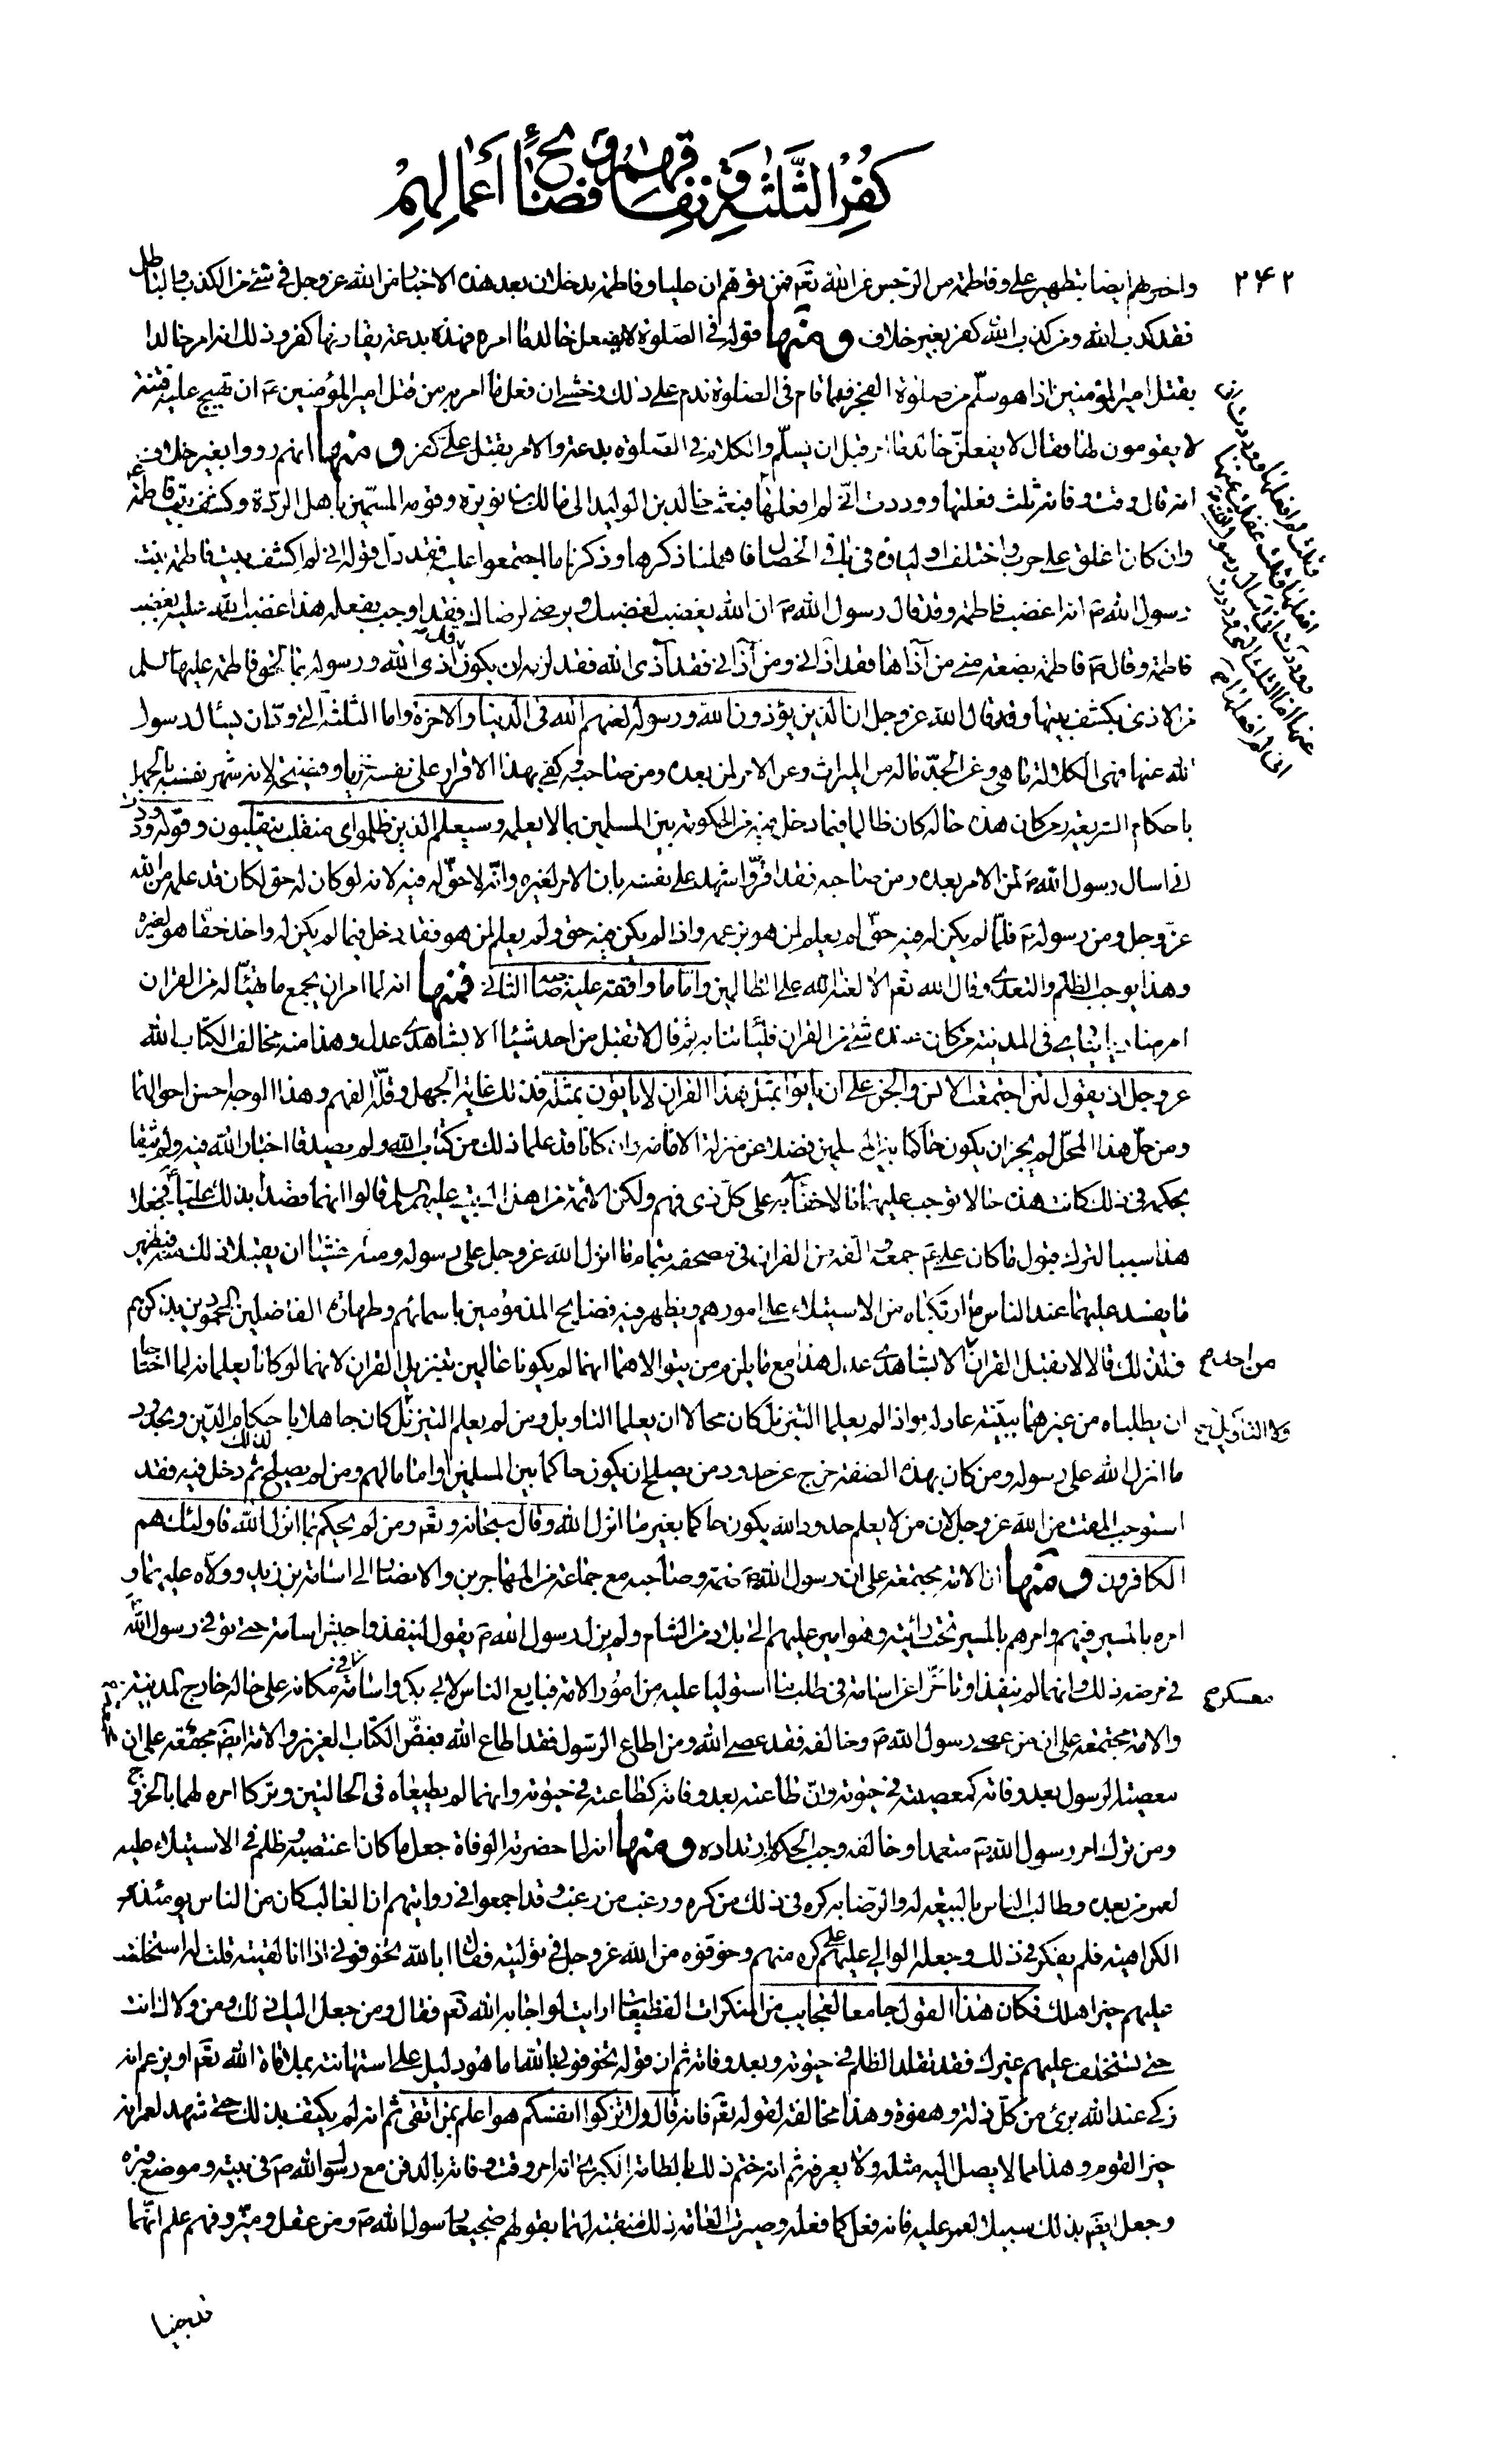 كُفْرِ الثَّلٰثَةِ وَ نِفٰاقِهِمْ وَ فَضٰائِحِ أَعْمٰالِهِمْ
٢٤٢
واخبرهم ايضا بتطهير علي وفاطمة من الرجس عن الله تعم فمن توهم ان عليا وفاطمة يدخلان بعد هذه الاخبار من الله عز وجل في شئ من الكذب والباطل
فقد كذب الله ومن كذب الله كفر بغير خلاف ومنها قوله في الصلوة لا يفعل خالد ما امره فهذه بدعة يقارنها كفر وذلك انه امر خالدا
بقتل امير المؤمنين اذا هو سلّم من صلوة الفجر فلما قام في الصلوة ندم على ذلك وخشي ان فعل ما امر به من قتل امير المؤمنين ع ان تهيج عليه فتنة
لا يقومون لها فقال لا يفعلنّ خالد ما امر قبل ان يسلّم والكلام في الصلوة بدعة والامر بقتل علي كفر ومنها انهم رووا بغير خلاف
انه قال وقت وفاته ثلث فعلتها ووددت اني لم افعلها فبعثه خالد بن الوليد الى مالك بن نويرة وقومه المسمّين باهل الردة وكشف بيت فاطمة ع
وان كان اغلق على حرب واختلف اولياؤه في باقي الخصال فاهملنا ذكرها وذكرنا ما اجتمعوا عليه فقد دلّ قوله اني لم اكشف بيت فاطمة بنت
رسول الله ص انه اغضب فاطمة وقد قال رسول الله ص ان الله يغضب لغضبك ويرضى لرضاك فقد اوجب بفعله هذا غضب الله عليه بغضب
فاطمة وقال ص فاطمة بضعة مني من آذاها فقد آذاني ومن آذاني فقد آذى الله فقد لزمه ان يكون قد آذى الله ورسوله بما لحق فاطمة عليها السلم
من الاذى بكشف بيتها وقد قال الله عز وجل ان الذين يؤذون الله ورسوله لعنهم الله في الدنيا والاخرة واما الثلثة التي ودّ ان يسئال رسول
الله عنها فهي الكلالة ما هي وعن الجدّ ماله من الميراث وعن الامر لمن بعده ومن صاحبه وكفى بهذا الاقرار على نفسه خزيا وفضيحة لانه شهر نفسه بالجهل
باحكام الشريعة ومن كان هذه حاله كان ظالما فيما دخل فيه من الحكومة بين المسلمين بما لا يعلمه وسيعلم الذين ظلموا اي منقلب ينقلبون وقوله وددت
اني اسال رسول الله ص لمن الامر بعده ومن صاحبه فقد اقرّ واشهد على نفسه بان الامر لغيره وانّه لا حقّ له فيه لانه لو كان له حق لكان قد علمه من الله
عزّ وجل ومن رسوله ص فلمّا لم يكن له فيه حقّ لم يعلم لمن هو بزعمه واذا لم يكن فيه حق ولم يعلم لمن هو فقد دخل فيما لم يكن له واخذ حقا هو لغيره
وهذا يوجب الظلم والتعدي وقال الله تعم الا لعنة الله على الظالمين واما ما وافقه عليه صاحبه الثاني فمنها انه لما امر ان يجمع ما تهيئا له من القران
امر مناديا ينادي في المدينة من كان عنده شئ من القران فلياتنا به ثم قال لا تقبل من احد شيئا الا بشاهدي عدل وهذا منه مخالف لكتاب الله
عز وجل اذ يقول لئن اجتمعت الانس والجن على ان ياتوا بمثل هذا القران لا ياتون بمثله فذلك غاية الجهل وقلّة الفهم وهذا الوجه احسن احوالهما
ومن حلّ هذا المحلّ لم يجز ان يكون حاكما بين المسلمين فضلا عن منزلة الامامة وان كانا قد علما ذلك من كتاب الله ولم يصدقا اخبار الله فيه ولم يثقا
بحكمه في ذلك كانت هذه حالا توجب عليهما ما لا خفاء به على كلّ ذي فهم ولكن الائمة من اهل البيت عليهم السلم قالوا انهما قصدا بذلك عليا ع فجعلا
هذا سببا لترك قبول ما كان علي ع جمعه والفه من القران في مصحفه بتمام ما انزل الله عز وجل على رسوله ومنه خشيا ان يقبلا ذلك منه فيظهر
ما يفسد عليهما عند الناس ما ارتكباه من الاستيلاء على امورهم ويظهر فيه فضايح المذمومين باسمائهم وطهارة الفاضلين المحمودين بذكرهم
فلذلك قالا لا نقبل القران الا بشاهدي عدل هذا مع ما يلزم من يتوالاهما انهما لم يكونا عالمين بتنزيل القران لانهما لو كانا يعلمانه لما احتاجا
من احد ص
ان يطلباه من غيرهما ببيّنة عادلة واذا لم يعلما التنزيل كان محالا ان يعلما التاويل ومن لم يعلم التنزيل كان جاهلا باحكام الدّين وبحدود
ولا التاويل ص
ما انزل الله على رسوله ومن كان بهذه الصفة خرج عن حدود من يصلح ان يكون حاكما بين المسلمين او اماما لهم ومن لم يصلح لذلك ثم دخل فيه فقد
استوجب المقت من الله عز وجل لان من لا يعلم حدود الله يكون حاكما بغير ما انزل الله وقال سبحانه وتعم ومن لم يحكم بما انزل الله فاولئك هم
الكافرون ومنها ان الامة مجتمعة على ان رسول الله ص ضمه وصاحبه مع جماعة من المهاجرين والانصار الى اسامة بن زيد وولاّه عليهما و
امره بالمسير فيهم وامرهم بالمسير تحت رائيته وهو امير عليهم الى بلاد من الشام ولم يزل رسول الله ص يقول لينفذوا جيش اسامة حتى توفي رسول الله ص
في مرضه ذلك وانهما لم ينفذا وتاخّرا عن اسامة في طلب ما استوليا عليه من امور الامة فبايع الناس لابي بكر واسامة في مكانه على حاله خارج المدينة
معسكر ص
والامة مجتمعة على ان من عصى رسول الله ص وخالفه فقد عصى الله ومن اطاع الرسول فقد اطاع الله بنصّ الكتاب العزيز والامة ايضَ مجمعة على ان
معصية الرسول بعد وفاته كمعصيته في حيوته وانّ طاعته بعد وفاته كطاعته في حيوته وانهما لم يطيعاه في الحالتين وتركا امره لهما بالخروج
ومن ترك امر رسول الله ص متعمدا وخالفه وجب الحكم بارتداده ومنها انه لما حضرته الوفاة جعل ما كان اغتصبه وظلم في الاستيلاء عليه
لعمر من بعده وطالب الناس بالبيعة له والرضا به كره في ذلك من كره ورغب من رغب وقد اجمعوا في روايتهم ان الغالب كان من الناس يومئذ
الكراهية فلم يفكر في ذلك وجعله الوالي عليهم على كره منهم وخوّفوه من الله عز وجل في توليته فقال ابالله تخوفوني اذا انا لقيته قلت له استخلفت
عليهم خير اهلك فكان هذا القول جامعا لعجايب من المنكرات الفظيعات ارايت لو اجابه الله تعم فقال ومن جعل اليك ذلك ومن ولاك انت
حتى تستخلف عليهم غيرك فقد تقلد الظلم في حيوته وبعد وفاته ثم ان قوله تخوفوني بالله اما هو دليل على استهانته بملاقاة الله تعم او يزعم انه
زكي عند الله برئ من كلّ زلة وهفوة وهذا مخالفة لقوله تعم فانه قال ولا تزكوا انفسكم هو اعلم بمن اتقى ثم انه لم يكتف بذلك حتى شهد لعمر انه
خير القوم وهذا مما لا يصل اليه مثله ولا يعرفه ثم انه ختم ذلك بالطامة الكبرى انه امر وقت وفاته بالدفن مع رسول الله ص في بيته وموضع قبره
وجعل ايضَ بذلك سبيلا لعمر عليه فانه فعل كما فعله وصيرت العامة ذلك منقبة لهما بقولهم ضجيعا رسول الله ص ومن عقل وميّز وفهم علم انّهما